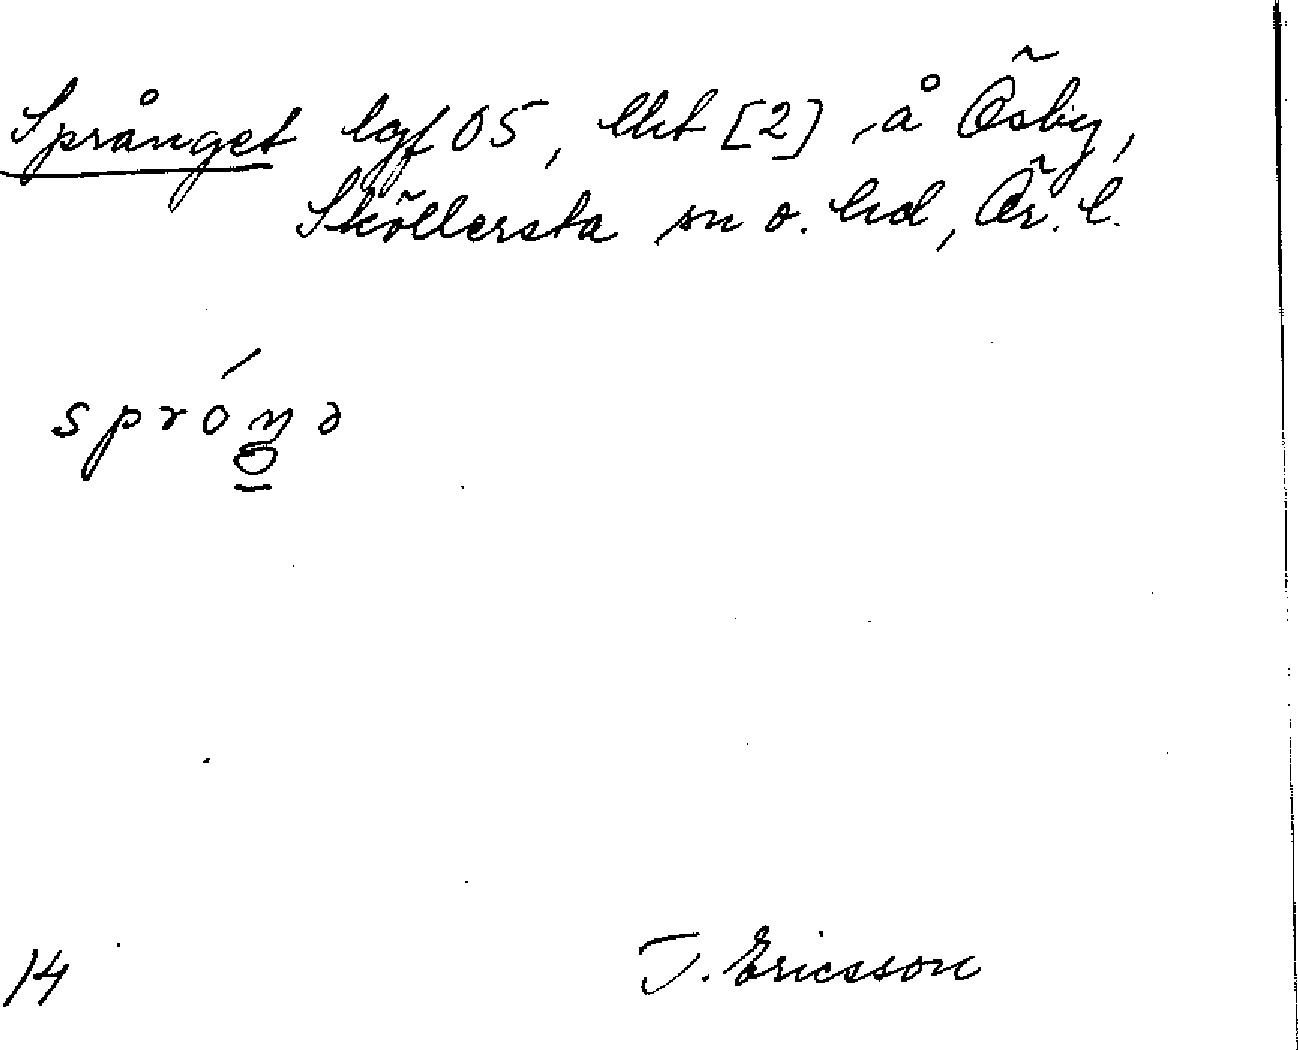 Språnget lgf 05, lht [2] å Ösby,
Sköllersta sn o. hd, Ör. l.
spróŋə
14 T. Ericsson